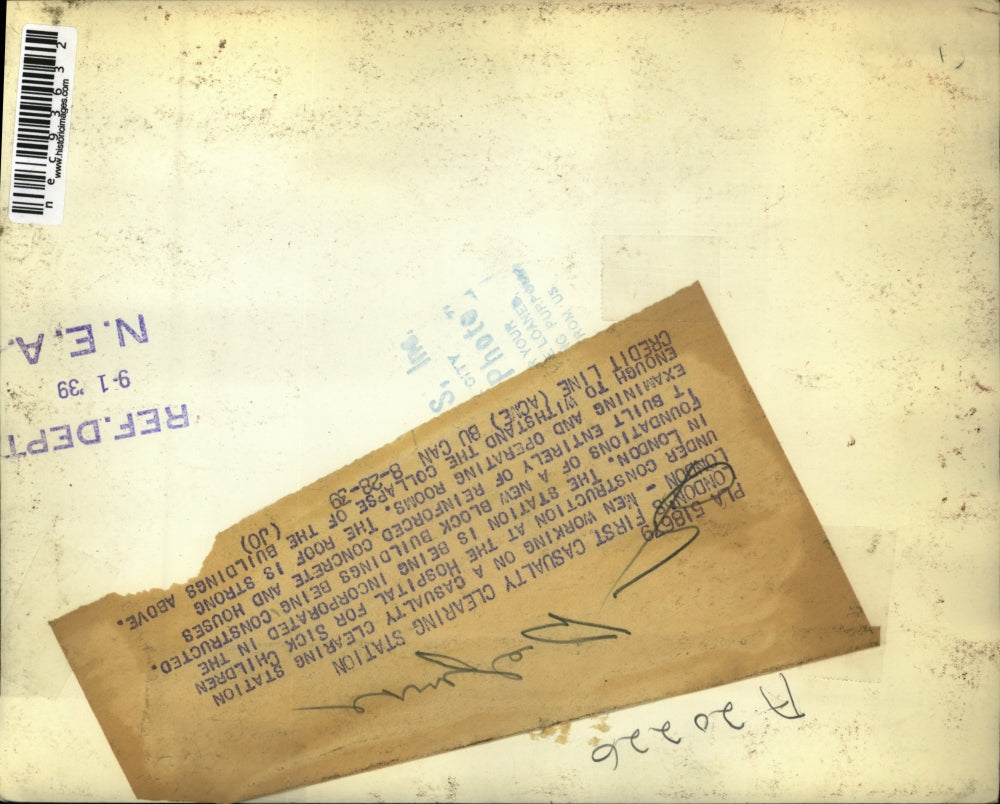 n e c 9 3 6 3 2
www.historicimages.com
REF.DEPT
9-1 '39
N.E.A.
S, Inc.
CITY
Photo"
YOUR
LOANED,
FROM US
PLA 518679
LONDON'S FIRST CASUALTY CLEARING STATION
LONDON - MEN WORKING ON A CASUALTY CLEARING STATION
UNDER CONSTRUCTION AT THE HOSPITAL FOR SICK CHILDREN
IN LONDON. THE STATION IS BEING INCORPORATED IN THE
FOUNDATIONS OF NEW BLOCK BUILDINGS BEING CONSTRUCTED.
T BUILT ENTIRELY OF REINFORCED CONCRETE AND HOUSES
EXAMINING AND OPERATING ROOMS. THE ROOF IS STRONG
ENOUGH TO WITHSTAND THE COLLAPSE OF THE BUILDINGS ABOVE.
CREDIT LINE (ACME) BU CAN 8-28-39 (JO)
A 20226